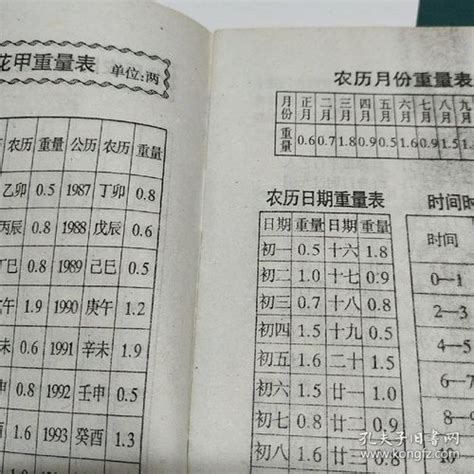 花甲重量表 单位:两
农历 重量 公历 农历 重量
乙卯 0.5 1987 丁卯 0.8
丙辰 0.8 1988 戊辰 0.6
丁巳 0.8 1989 己巳 0.5
午 1.9 1990 庚午 1.2
未 0.6 1991 辛未 1.9
申 0.8 1992 壬申 0.5
1.6 1993 癸酉 1.3
农历月份重量表
月份 正月 二月 三月 四月 五月 六月 七月 八月 九月
重量 0.6 0.7 1.8 0.9 0.5 1.6 0.9 1.5 1.
农历日期重量表
日期 重量 日期 重量
初一 0.5 十六 1.8
初二 1.0 十七 0.9
初三 0.7 十八 0.8
初四 1.5 十九 0.5
初五 1.6 二十 1.5
初六 1.5 廿一 1.0
初七 0.8 廿二 0.9
初八 1.6
时间时
时间
0—1
2—3
4—5
6—7
8—
10
孔夫子旧书网
www.kongfz.com